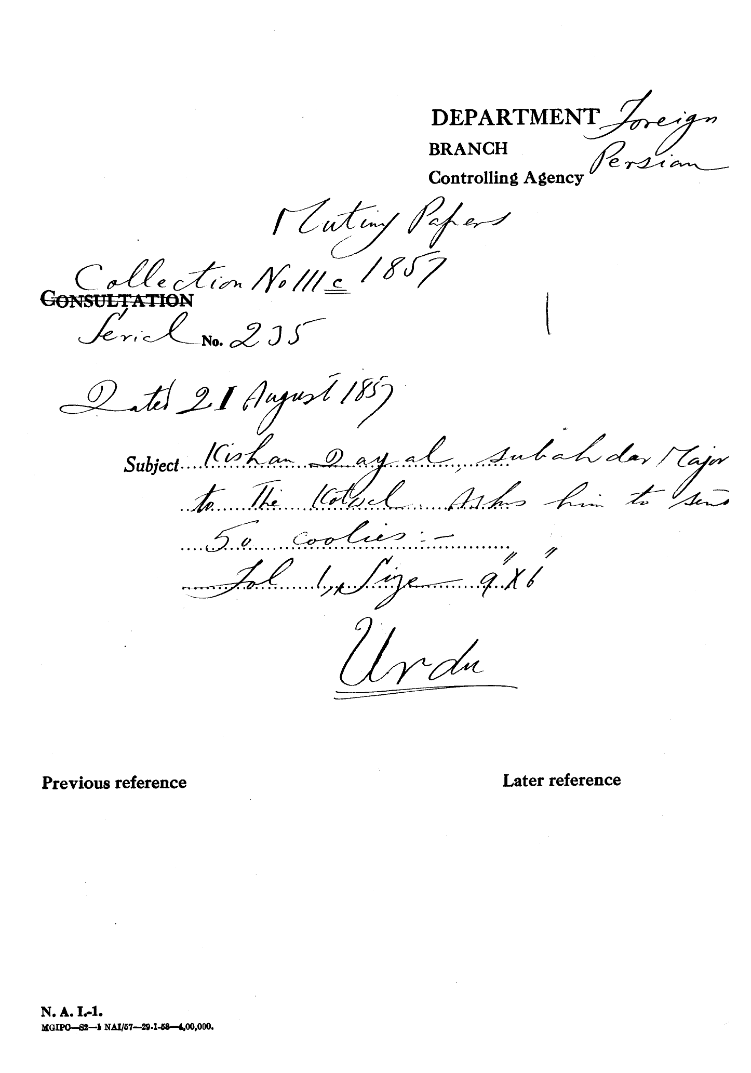 DEPARTMENT Foreign
BRANCH Persian
Controlling Agency
Mutiny Papers
Collection No IIIc 1857
CONSULTATION
Serial No. 235
Dated 21 August 1857
Subject Kishan Dayal, subahdar Major
to The Kotwal Asks him to send
50 coolies:-
Fol 1, Size 9"X6"
Urdu
Previous reference
Later reference
N. A. I.-1.
MGIPO—S2—1 NAI/57—29-1-58—4,00,000.